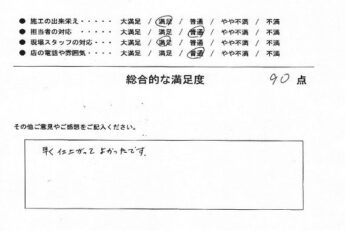 ● 施工の出来栄え・・・・・ 大満足 / 満足 / 普通 / やや不満 / 不満
● 担当者の対応 ・・・・・ 大満足 / 満足 / 普通 / やや不満 / 不満
● 現場スタッフの対応・・・ 大満足 / 満足 / 普通 / やや不満 / 不満
● 店の電話や雰囲気・・・・ 大満足 / 満足 / 普通 / やや不満 / 不満
総合的な満足度 90 点
その他ご意見やご感想をご記入ください。
早く仕上がってよかったです。